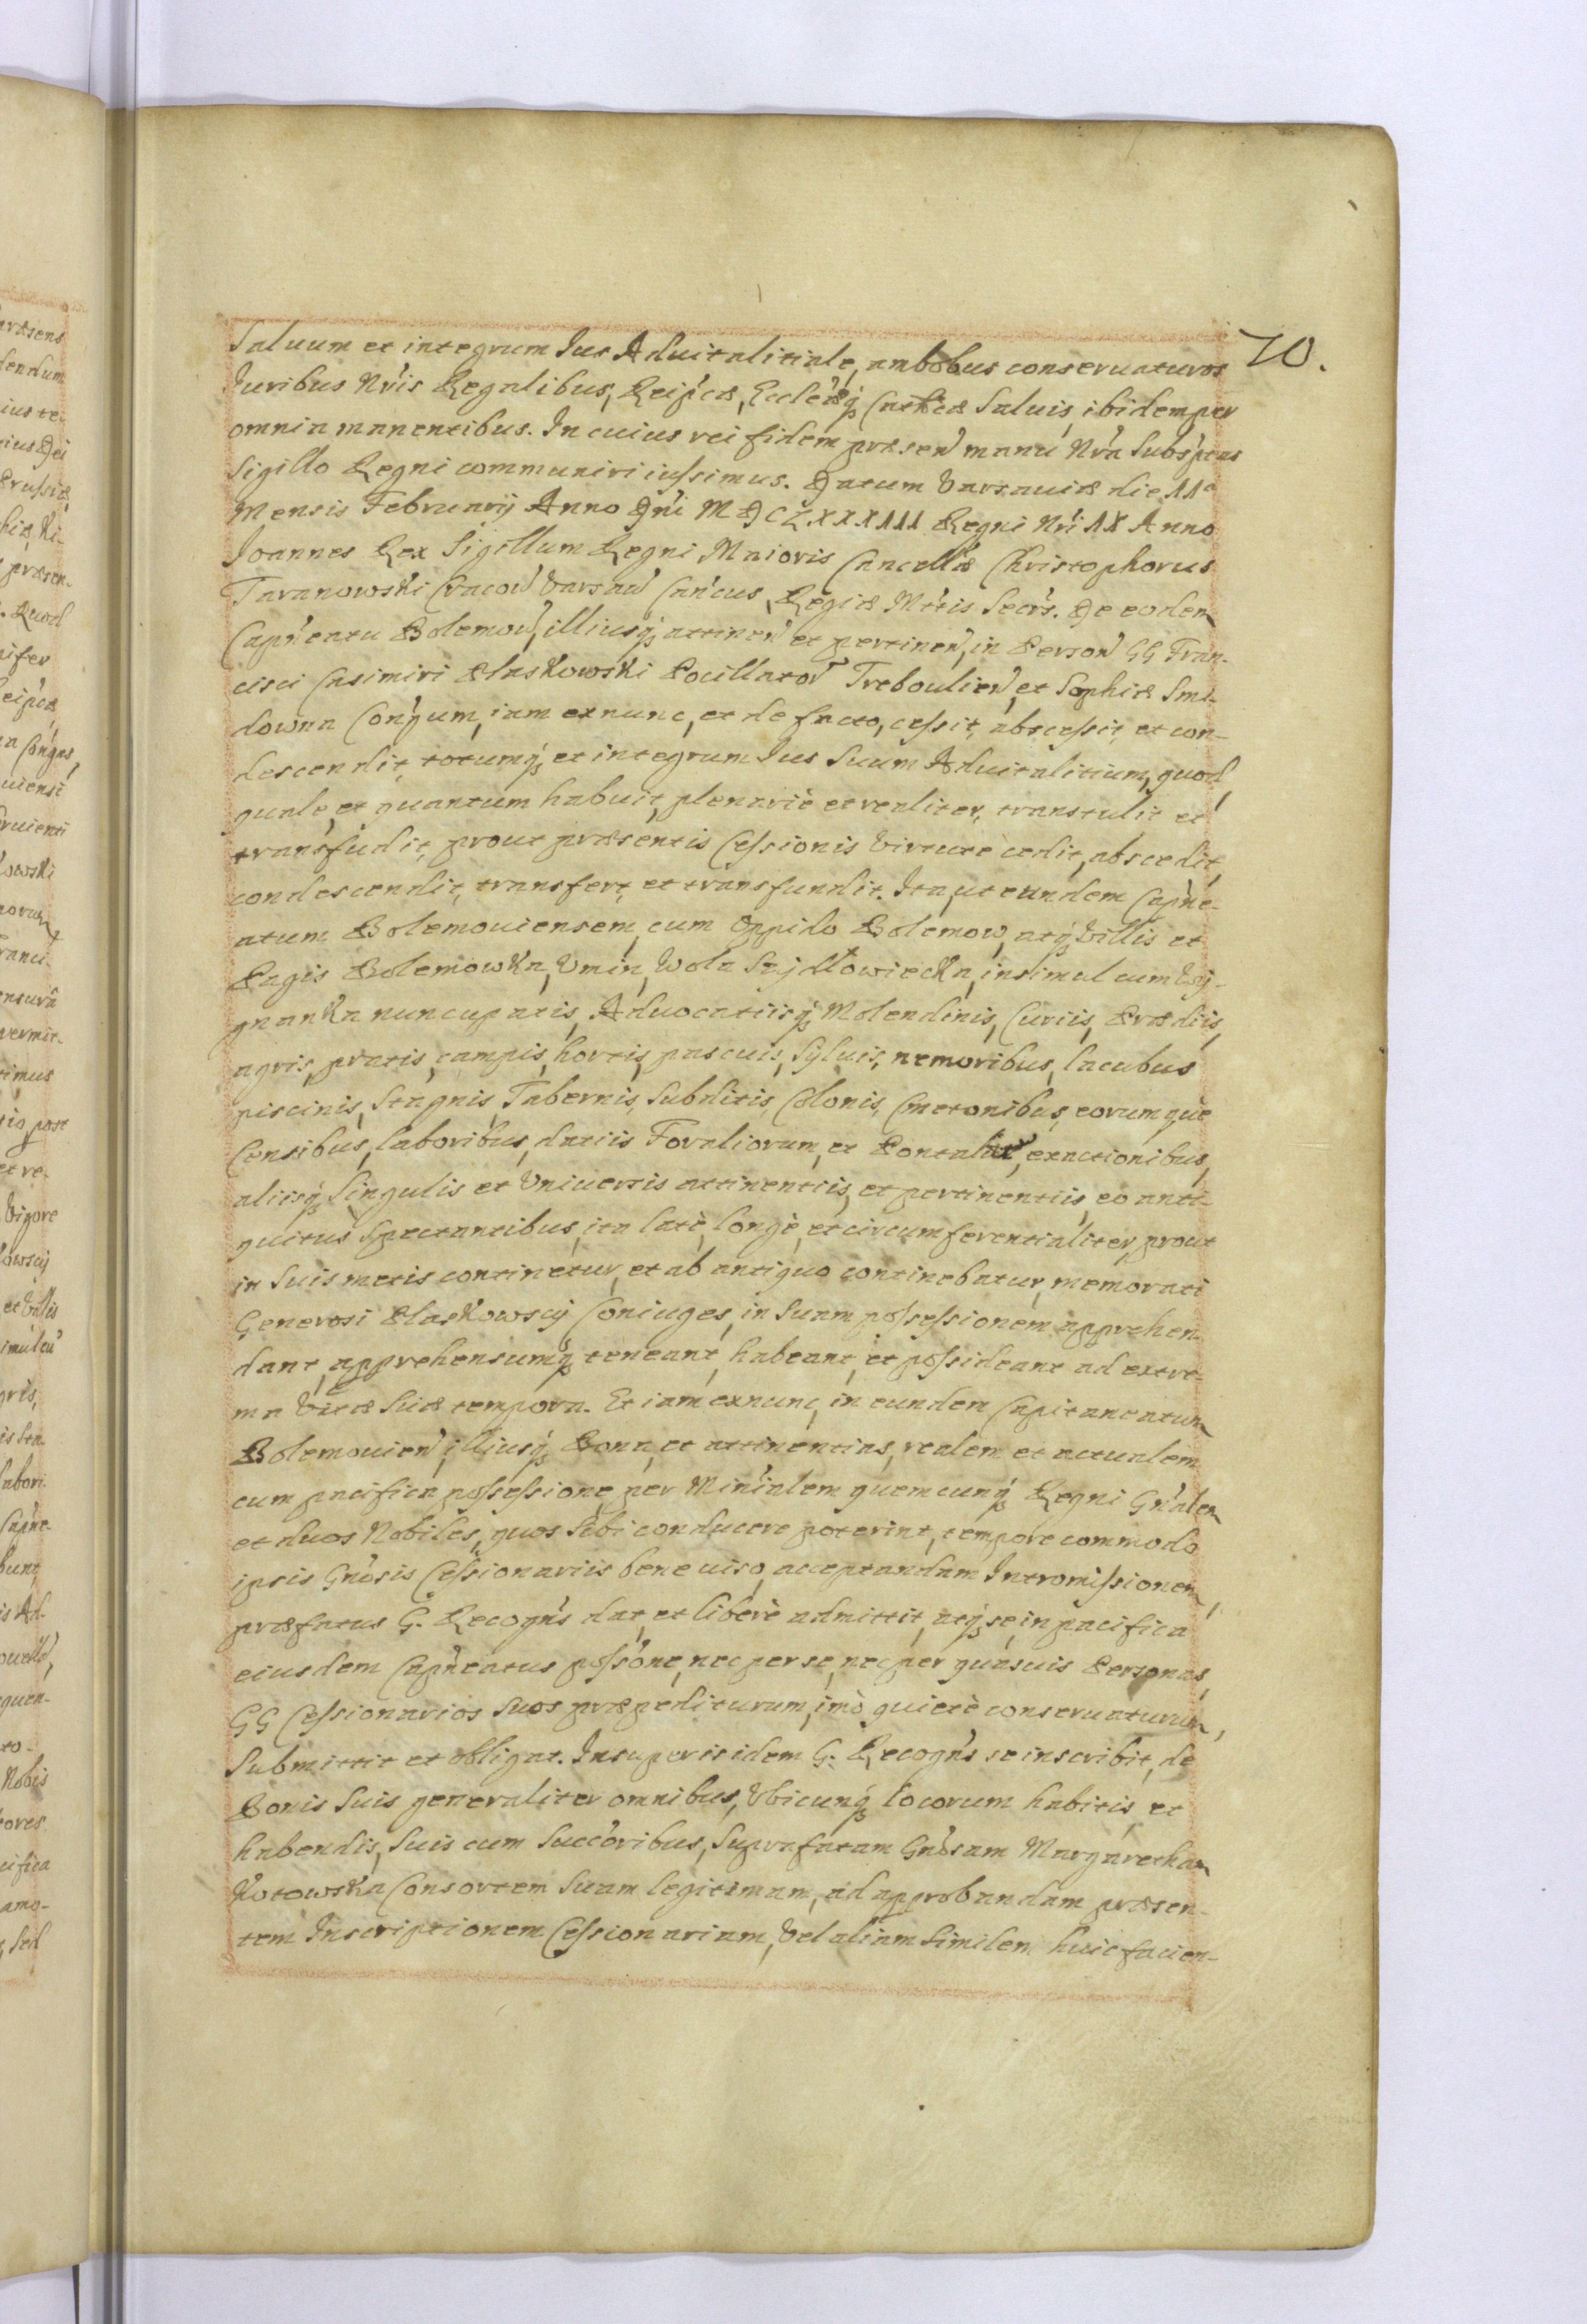 70.
Saluum et integrum Ius Aduitalitiale, ambobus conseruaturos
Iuribus Nr̃is Regalibus, Reip̃cæ, Eccleæq; Cathcæ Saluis, ibidem per
omnia manentibus. In cuius rei fidem præsen̄ manu Nr̃a Subsp̃tas
Sigillo Regni communiri iussimus. Datum Varsauiæ die 11ª
Mensis Februarij Anno Dñi MDCLXXXIII Regni Nr̃i IX Anno
Joannes Rex Sigillum Regni Maioris Cancellæ Christophorus
Taranowski Cracoū Varsaū Can̄cus, Regiæ Mt̃is Secr̃s. De eodem
Capñeatu Bolemoū, illiusq; attinen̄ et pertinen̄, in Person̄ GG Fran-
cisci Casimiri Plaskowski Pocillator̄ Treboulien̄, et Sophiæ Smi-
downa Con̄gum, iam exnunc, et de facto, cessit, abscessit, et con-
descendit, totumq; et integrum Ius Suum Aduitalitium, quod,
quale, et quantum habuit, plenariè et realiter, transtulit et
transfudit, prout præsentis Cessionis Virtute cedit, abscedit,
condescendit, transfert, et transfundit. Ita, ut eundem Capñe-
atum Bolemouiensem, cum Oppido Bolemow, atq; Villis et
Pagis Bolemowka, Vmin, Wola Szydłowiecka, insimul cum Wy-
gnanka nuncupatis, Aduocatiisq; Molendinis, Curiis, Prædiis,
agris, pratis, campis, hortis, pascuis, Syluis, nemoribus, lacubus
piscinis, Stagnis, Tabernis, Subditis, Colonis, Cmetonibus, eorumque
Censibus, laboribus, datiis Foraliorum, et Pontaliū, exactionibus,
aliisq; Singulis et Vniuersis attinentiis, et pertinentiis, eo anti-
quitus Spectantibus, ita latè, longè, et circumferentialiter, prout
in Suis metis continetur, et ab antiquo continebatur, memorati
Generosi Plaskowscy Coniuges, in Suam possessionem apprehen-
dant, apprehensumq; teneant, habeant, et possideant ad extre-
ma Vitæ Suæ tempora. Et iam exnunc, in eundem Capitaneatum
Bolemouien̄, illiusq; Bona, et attinentias, realem et actualem
cum pacifica possessione, per Miniãlem quemcunq; Regni Gnãlem
et duos Nobiles, quos Sibi conducere poterint, tempore commodo
ipsis Gnõsis Cessionariis bene uiso, acceptandam Intromissionem,
præfatus G. Recogñs dat, et liberè admittit, atq; se, in pacifica
eiusdem Capñeatus possõne, nec per se, nec per quasuis Personas,
GG Cessionarios Suos præpediturum, imò quietè conseruaturum,
Submittit et obligat. Insuper is idem G. Recogñs se inscribit, de
Bonis Suis generaliter omnibus, Vbicunq; locorum habitis, et
habendis, Suis cum Succõribus, Suprafatam Gnõsam Margaretham
Kotowska Consortem Suam legitimam, ad approbandam præsen-
tem Inscriptionem Cessionariam, Vel aliam Similem huic facien-